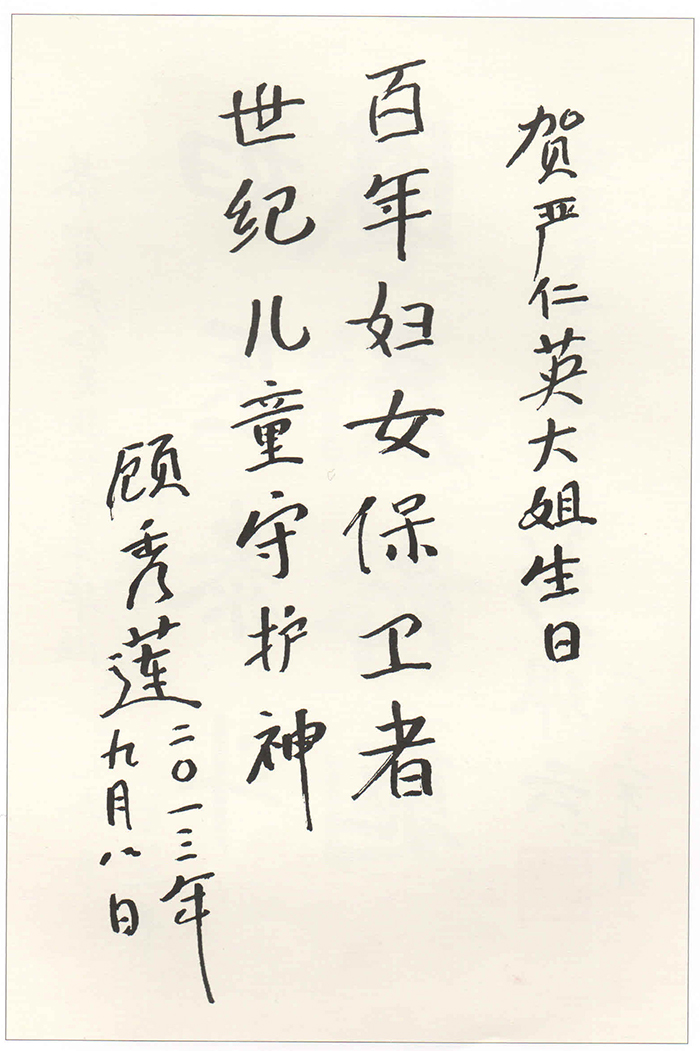 贺严仁英大姐生日
百年妇女保卫者
世纪儿童守护神
顾秀莲
二〇一三年
九月八日